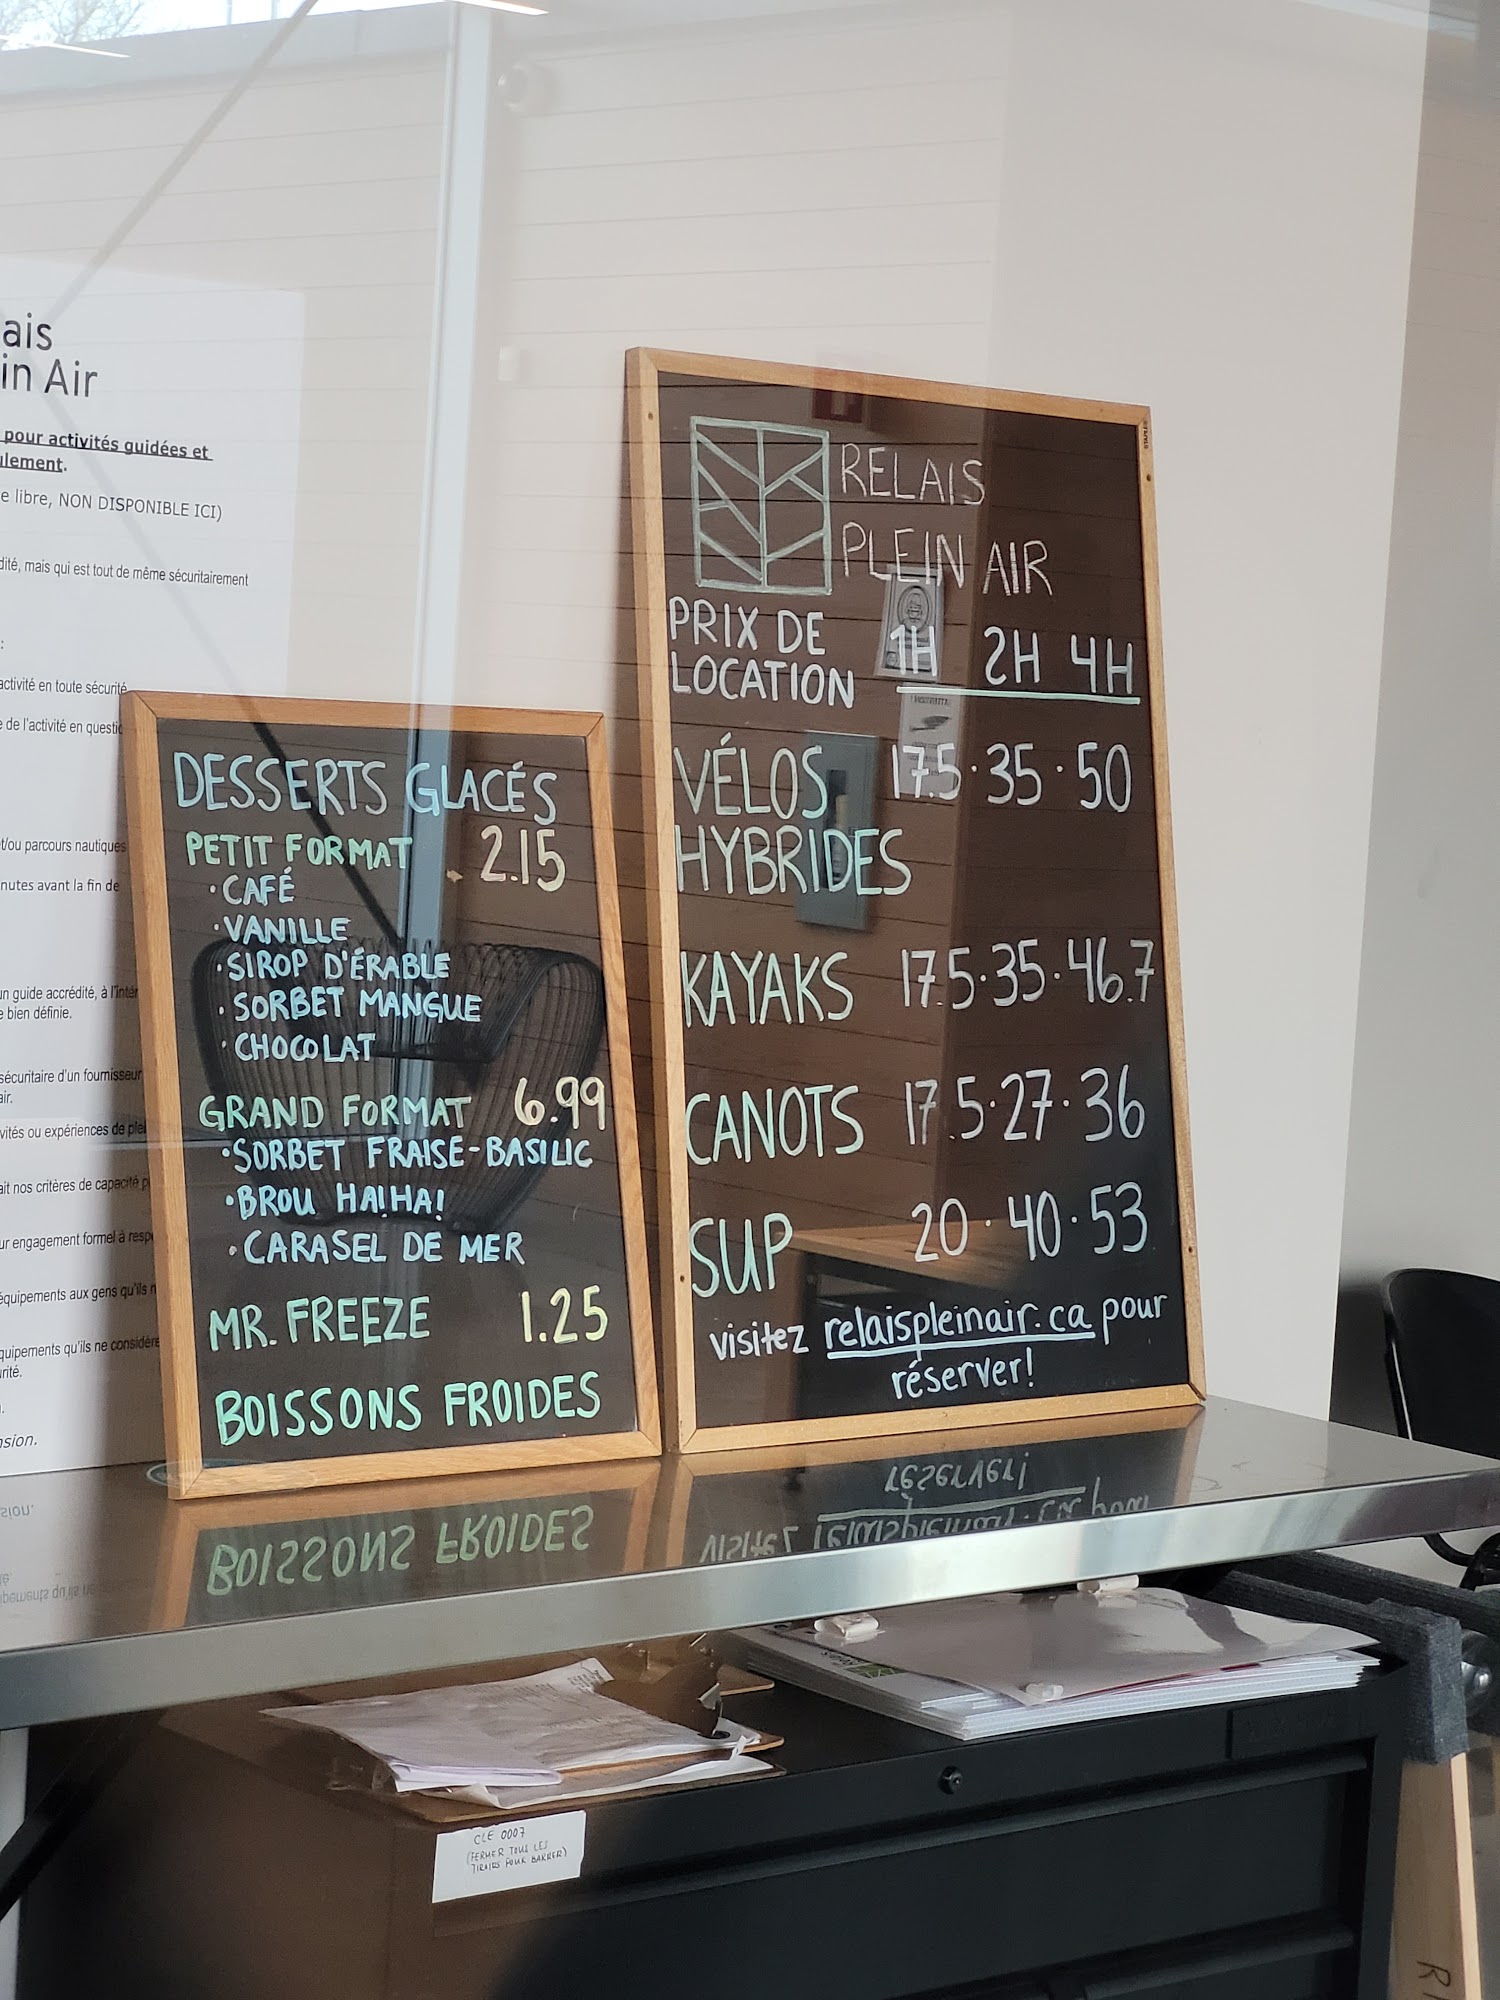 ais
in Air
pour activités guidées et
ulement.
e libre, NON DISPONIBLE ICI)
dité, mais qui est tout de même sécuritairement
:
activité en toute sécurité
e de l'activité en questio
t/ou parcours nautiques
nutes avant la fin de
un guide accrédité, à l'intér
e bien définie.
sécuritaire d'un fournisseur
air.
vités ou expériences de plei
ait nos critères de capacité p
ur engagement formel à respe
équipements aux gens qu'ils n
quipements qu'ils ne considère
rité.
nsion.
DESSERTS GLACÉS
PETIT FORMAT 2.15
· CAFÉ
· VANILLE
· SIROP D'ÉRABLE
· SORBET MANGUE
· CHOCOLAT
GRAND FORMAT 6.99
· SORBET FRAISE-BASILIC
· BROU HAHA!
· CARASEL DE MER
MR. FREEZE 1.25
BOISSONS FROIDES
RELAIS
PLEIN AIR
PRIX DE
LOCATION 1H 2H 4H
VÉLOS 17.5 · 35 · 50
HYBRIDES
KAYAKS 17.5 · 35 · 46.7
CANOTS 17.5 · 27 · 36
SUP 20 · 40 · 53
visitez relaispleinair.ca pour
réserver!
STAPLES
CLÉ 0007
(FERMER TOUS LES
TIROIRS POUR BARRER)